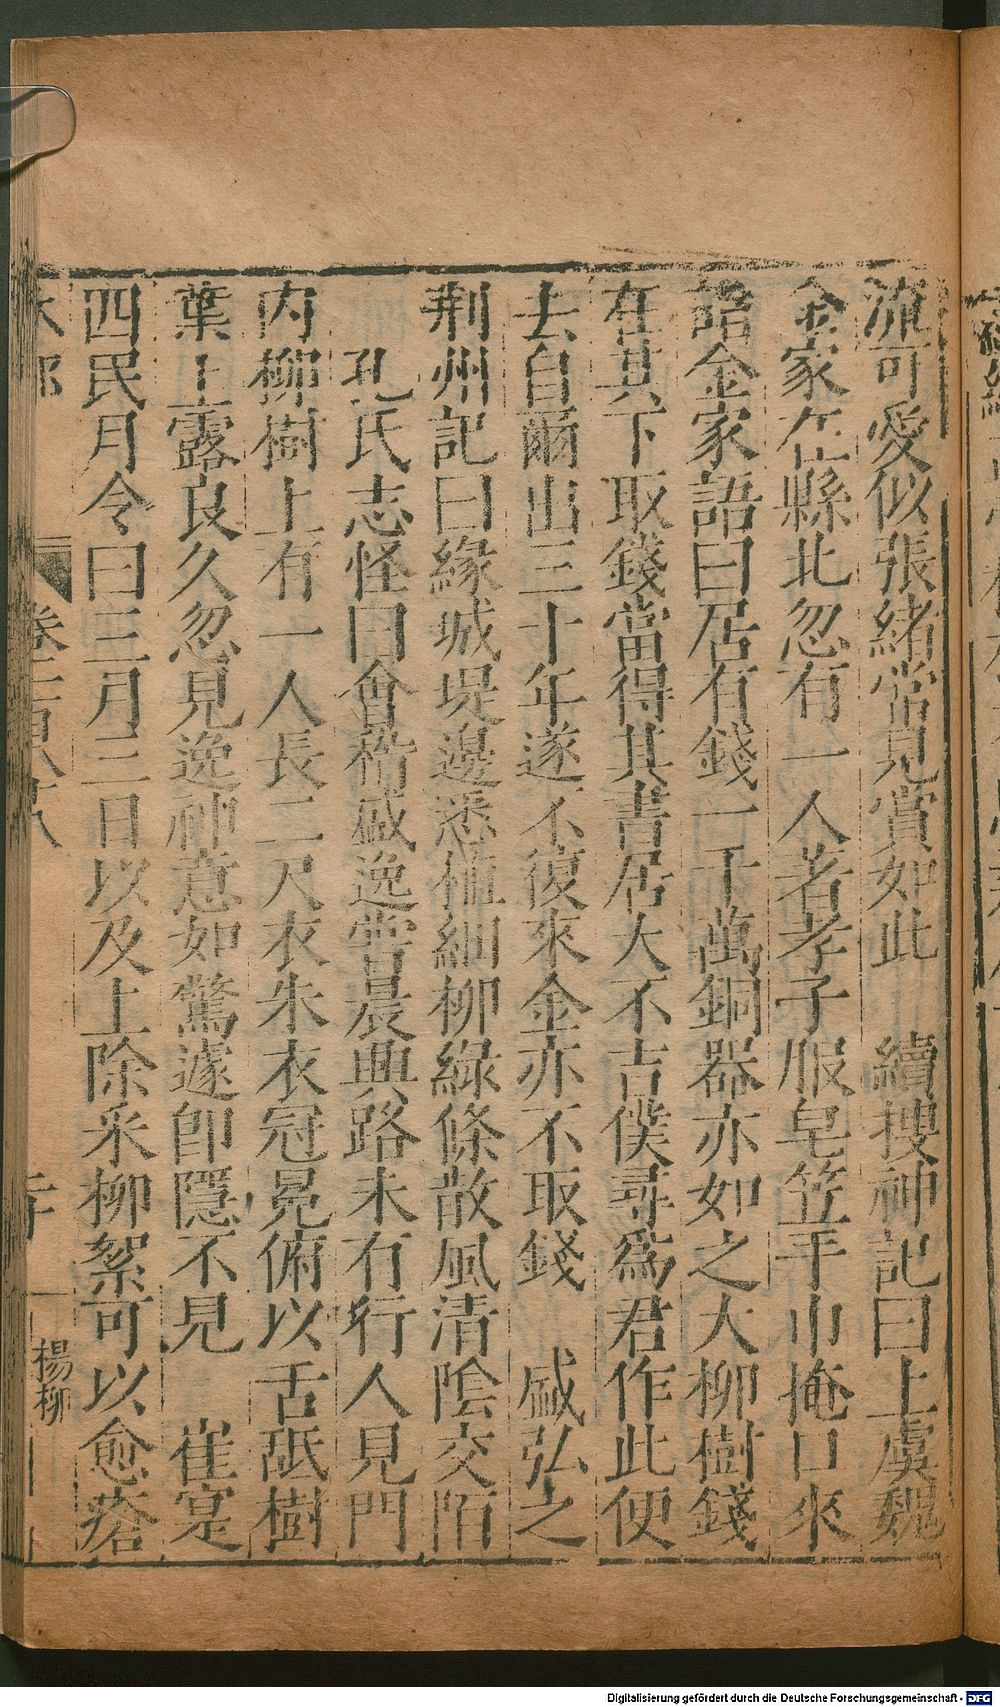 流可愛似張緒當見賞如此　續搜神記曰上虞魏
金家在縣北忽有一人著孝子服皂笠手巾掩口來
詣金家語曰居有錢一千萬銅器亦如之大柳樹錢
在其下取錢當得其書居大不吉僕尋爲君作此便
去自爾出三十年遂不復來金亦不取錢　盛弘之
荆州記曰緣城堤邊悉植細柳綠條散風清陰交陌
孔氏志怪曰會稽盛逸嘗晨興路未有行人見門
内柳樹上有一人長二尺衣朱衣冠冕俯以舌䑛樹
葉上露良久忽見逸神意如驚遽即隱不見　崔寔
四民月令曰三月三日以及上除采柳絮可以愈瘡
木部　卷三百八十八　楊柳
Digitalisierung gefördert durch die Deutsche Forschungsgemeinschaft - DFG